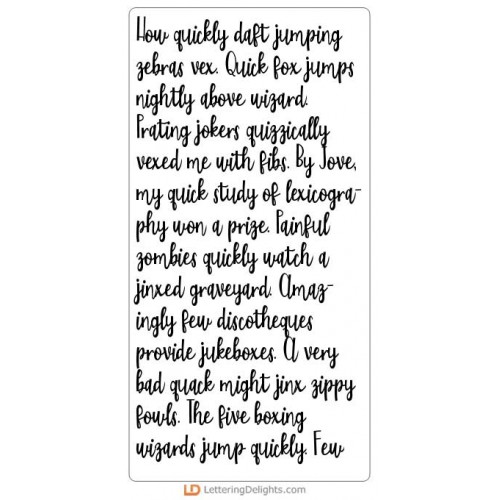 How quickly daft jumping
zebras vex. Quick fox jumps
nightly above wizard.
Prating jokers quizzically
vexed me with fibs. By Jove,
my quick study of lexicogra-
phy won a prize. Painful
zombies quickly watch a
jinxed graveyard. Amaz-
ingly few discotheques
provide jukeboxes. A very
bad quack might jinx zippy
fowls. The five boxing
wizards jump quickly. Few
LD LetteringDelights.com